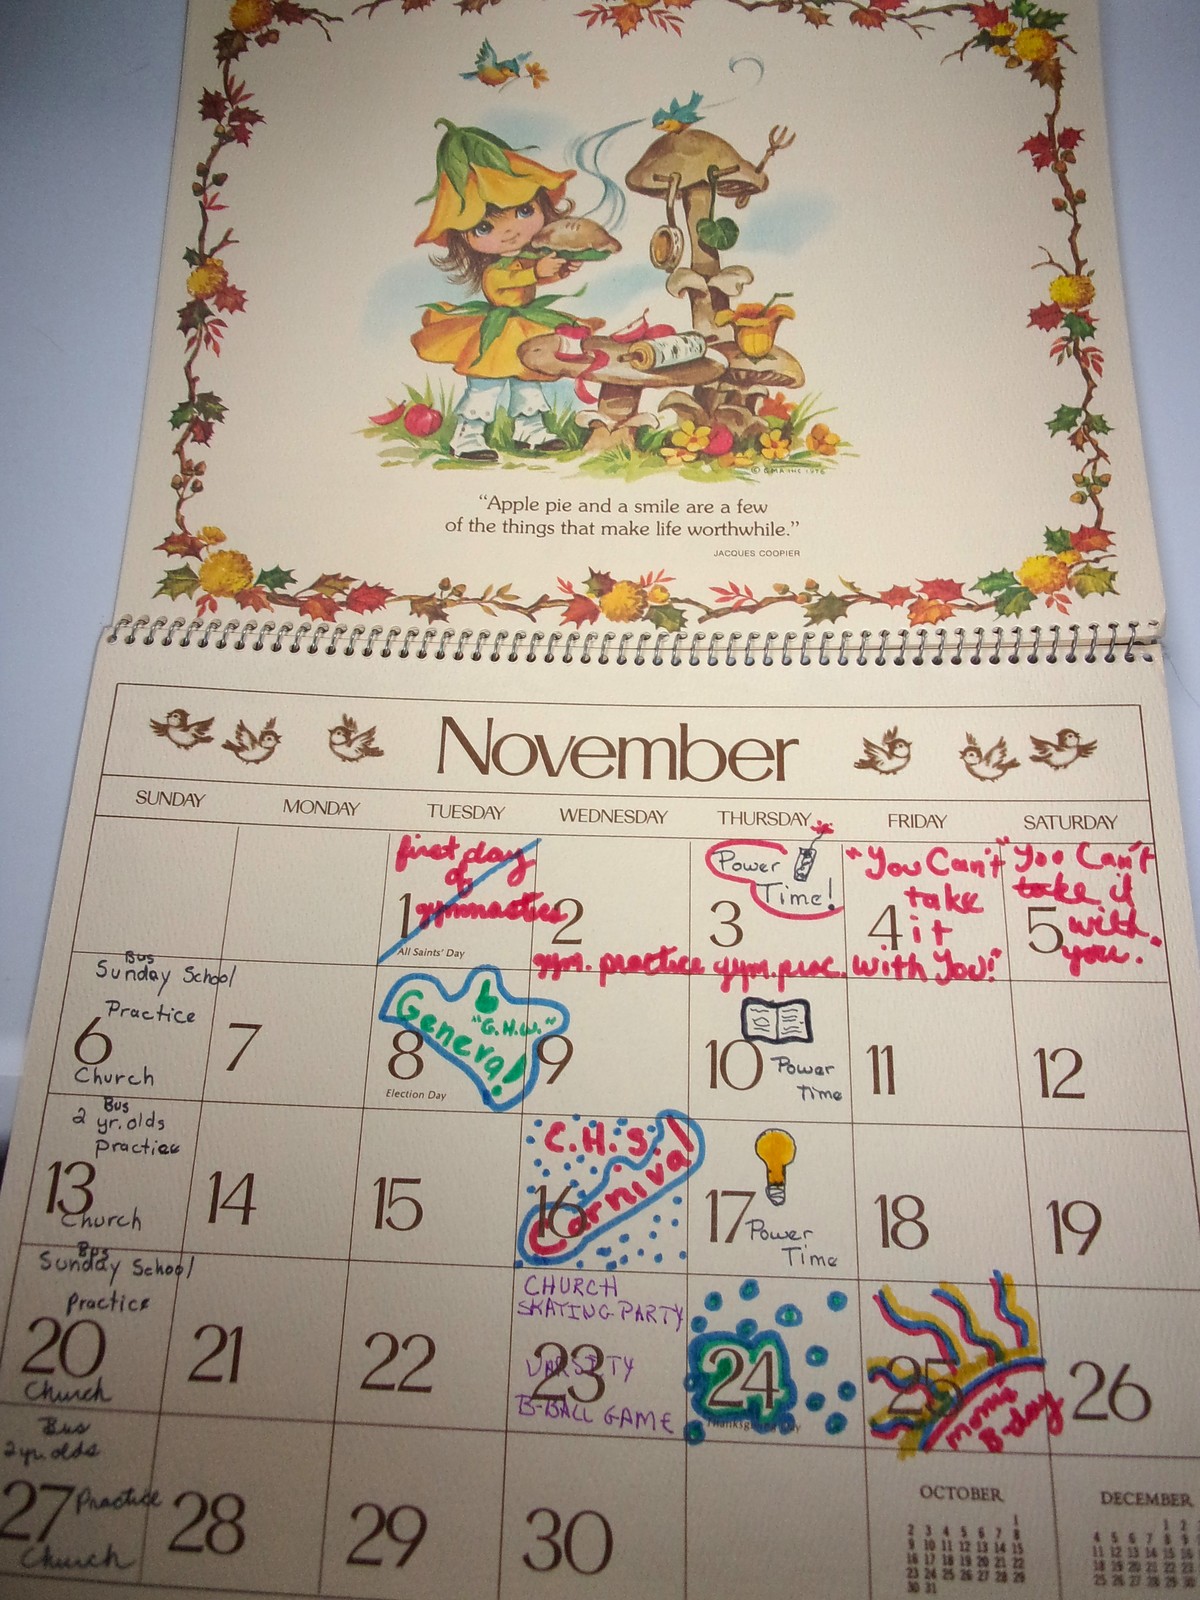 © GMA INC 1976
“Apple pie and a smile are a few
of the things that make life worthwhile.”
JACQUES COOPIER
November
SUNDAY MONDAY TUESDAY WEDNESDAY THURSDAY FRIDAY SATURDAY
first day
of
1 gymnastics
All Saints' Day
2
gym. practice
Power
Time!
3
gym. prac.
"You Can't
take
4 it
with You!"
"You Can't
take it
5 with
you."
Bus
Sunday School
Practice
6
Church
7
"G.H.W."
General!
8
Election Day
9
10 Power
Time
11
12
Bus
2 yr. olds
Practice
13
Church
14
15
C.H.S.
Carnival
16
17 Power
Time
18
19
Bus
Sunday School
Practice
20
Church
21
22
CHURCH
SKATING PARTY
23
VARSITY
B-BALL GAME
24
Thanksgiving Day
25
Mom's
B-day
26
Bus
2 yr. olds
27 Practice
Church
28
29
30
OCTOBER
1
2 3 4 5 6 7 8
9 10 11 12 13 14 15
16 17 18 19 20 21 22
23 24 25 26 27 28 29
30 31
DECEMBER
1 2
4 5 6 7 8 9
11 12 13 14 15 16
18 19 20 21 22 23
25 26 27 28 29 30